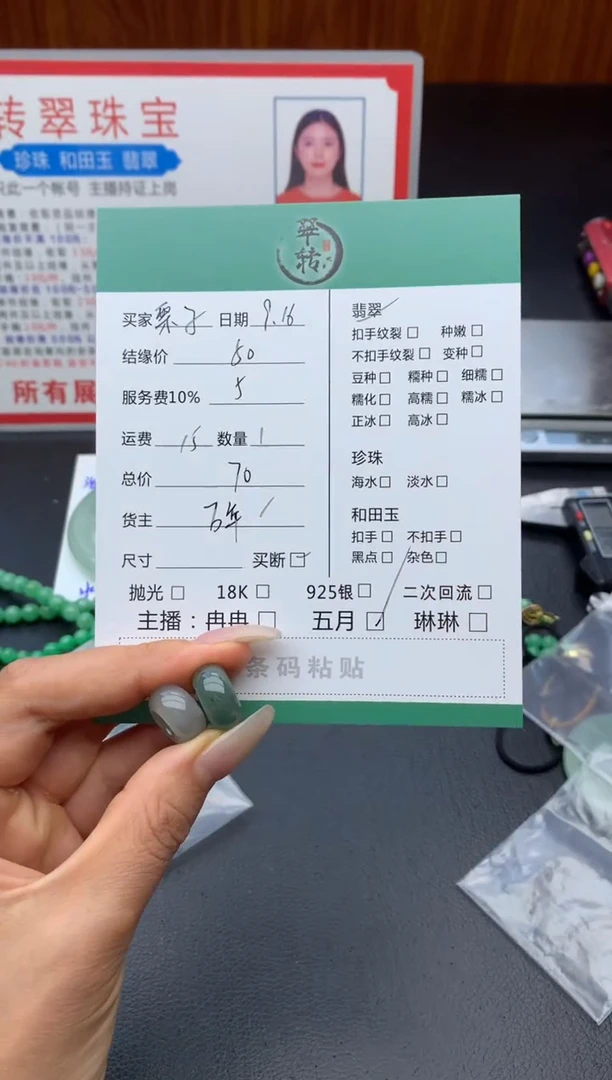 转翠珠宝
珍珠 和田玉 翡翠
只此一个帐号 主播持证上岗
所有展
翠转
买家 栗子 日期 9.16
结缘价 50
服务费10% 5
运费 15 数量 1
总价 70
货主 百年
尺寸 买断
翡翠
扣手纹裂 种嫩
不扣手纹裂 变种
豆种 糯种 细糯
糯化 高糯 糯冰
正冰 高冰
珍珠
海水 淡水
和田玉
扣手 不扣手
黑点 杂色
抛光 18K 925银 二次回流
主播：冉冉 五月 琳琳
条码粘贴